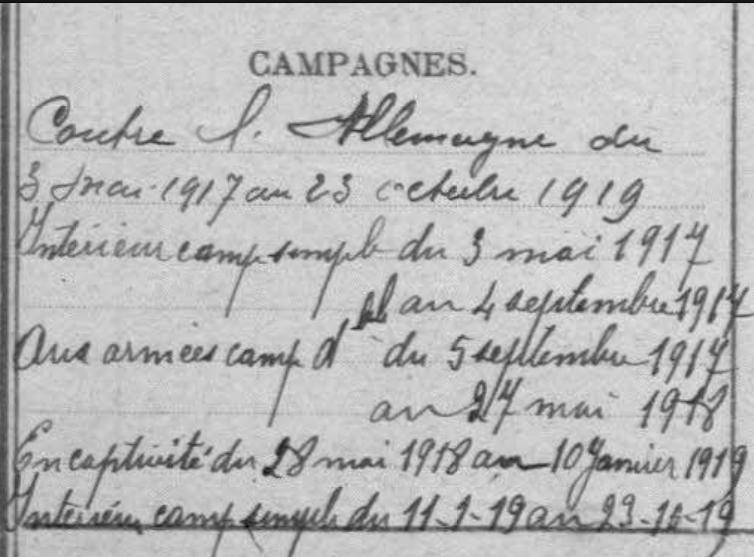 CAMPAGNES.
Contre l'Allemagne du
3 mai 1917 au 23 octobre 1919
Intérieur camp simple du 3 mai 1917
au 4 septembre 1917
Aux armées camp dble du 5 septembre 1917
au 27 mai 1918
En captivité du 28 mai 1918 au 10 Janvier 1919
Intérieur camp simple du 11-1-19 au 23-10-19